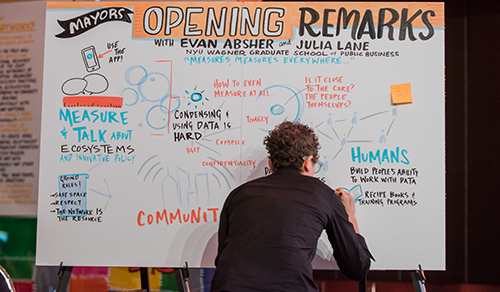 MAYORS
OPENING REMARKS
WITH EVAN ABSHER and JULIA LANE
NYU WAGNER GRADUATE SCHOOL of PUBLIC BUSINESS
"MEASURES MEASURES EVERYWHERE..."
USE THE APP!
MEASURE
& TALK ABOUT
ECOSYSTEMS
AND INNOVATIVE POLICY
CROWD RULES!
→SAFE SPACE
→RESPECT
→THE NETWORK IS
THE RESOURCE
CONDENSING &
USING DATA IS
HARD
UGLY
COMPLEX
CONFIDENTIALITY
HOW TO EVEN
MEASURE AT ALL
IS IT CLOSE
TO THE CORE?
THE PEOPLE
THEMSELVES?
COMMUNIT
HUMANS
BUILD PEOPLE'S ABILITY
TO WORK WITH DATA
RECIPE BOOKS &
TRAINING PROGRAMS